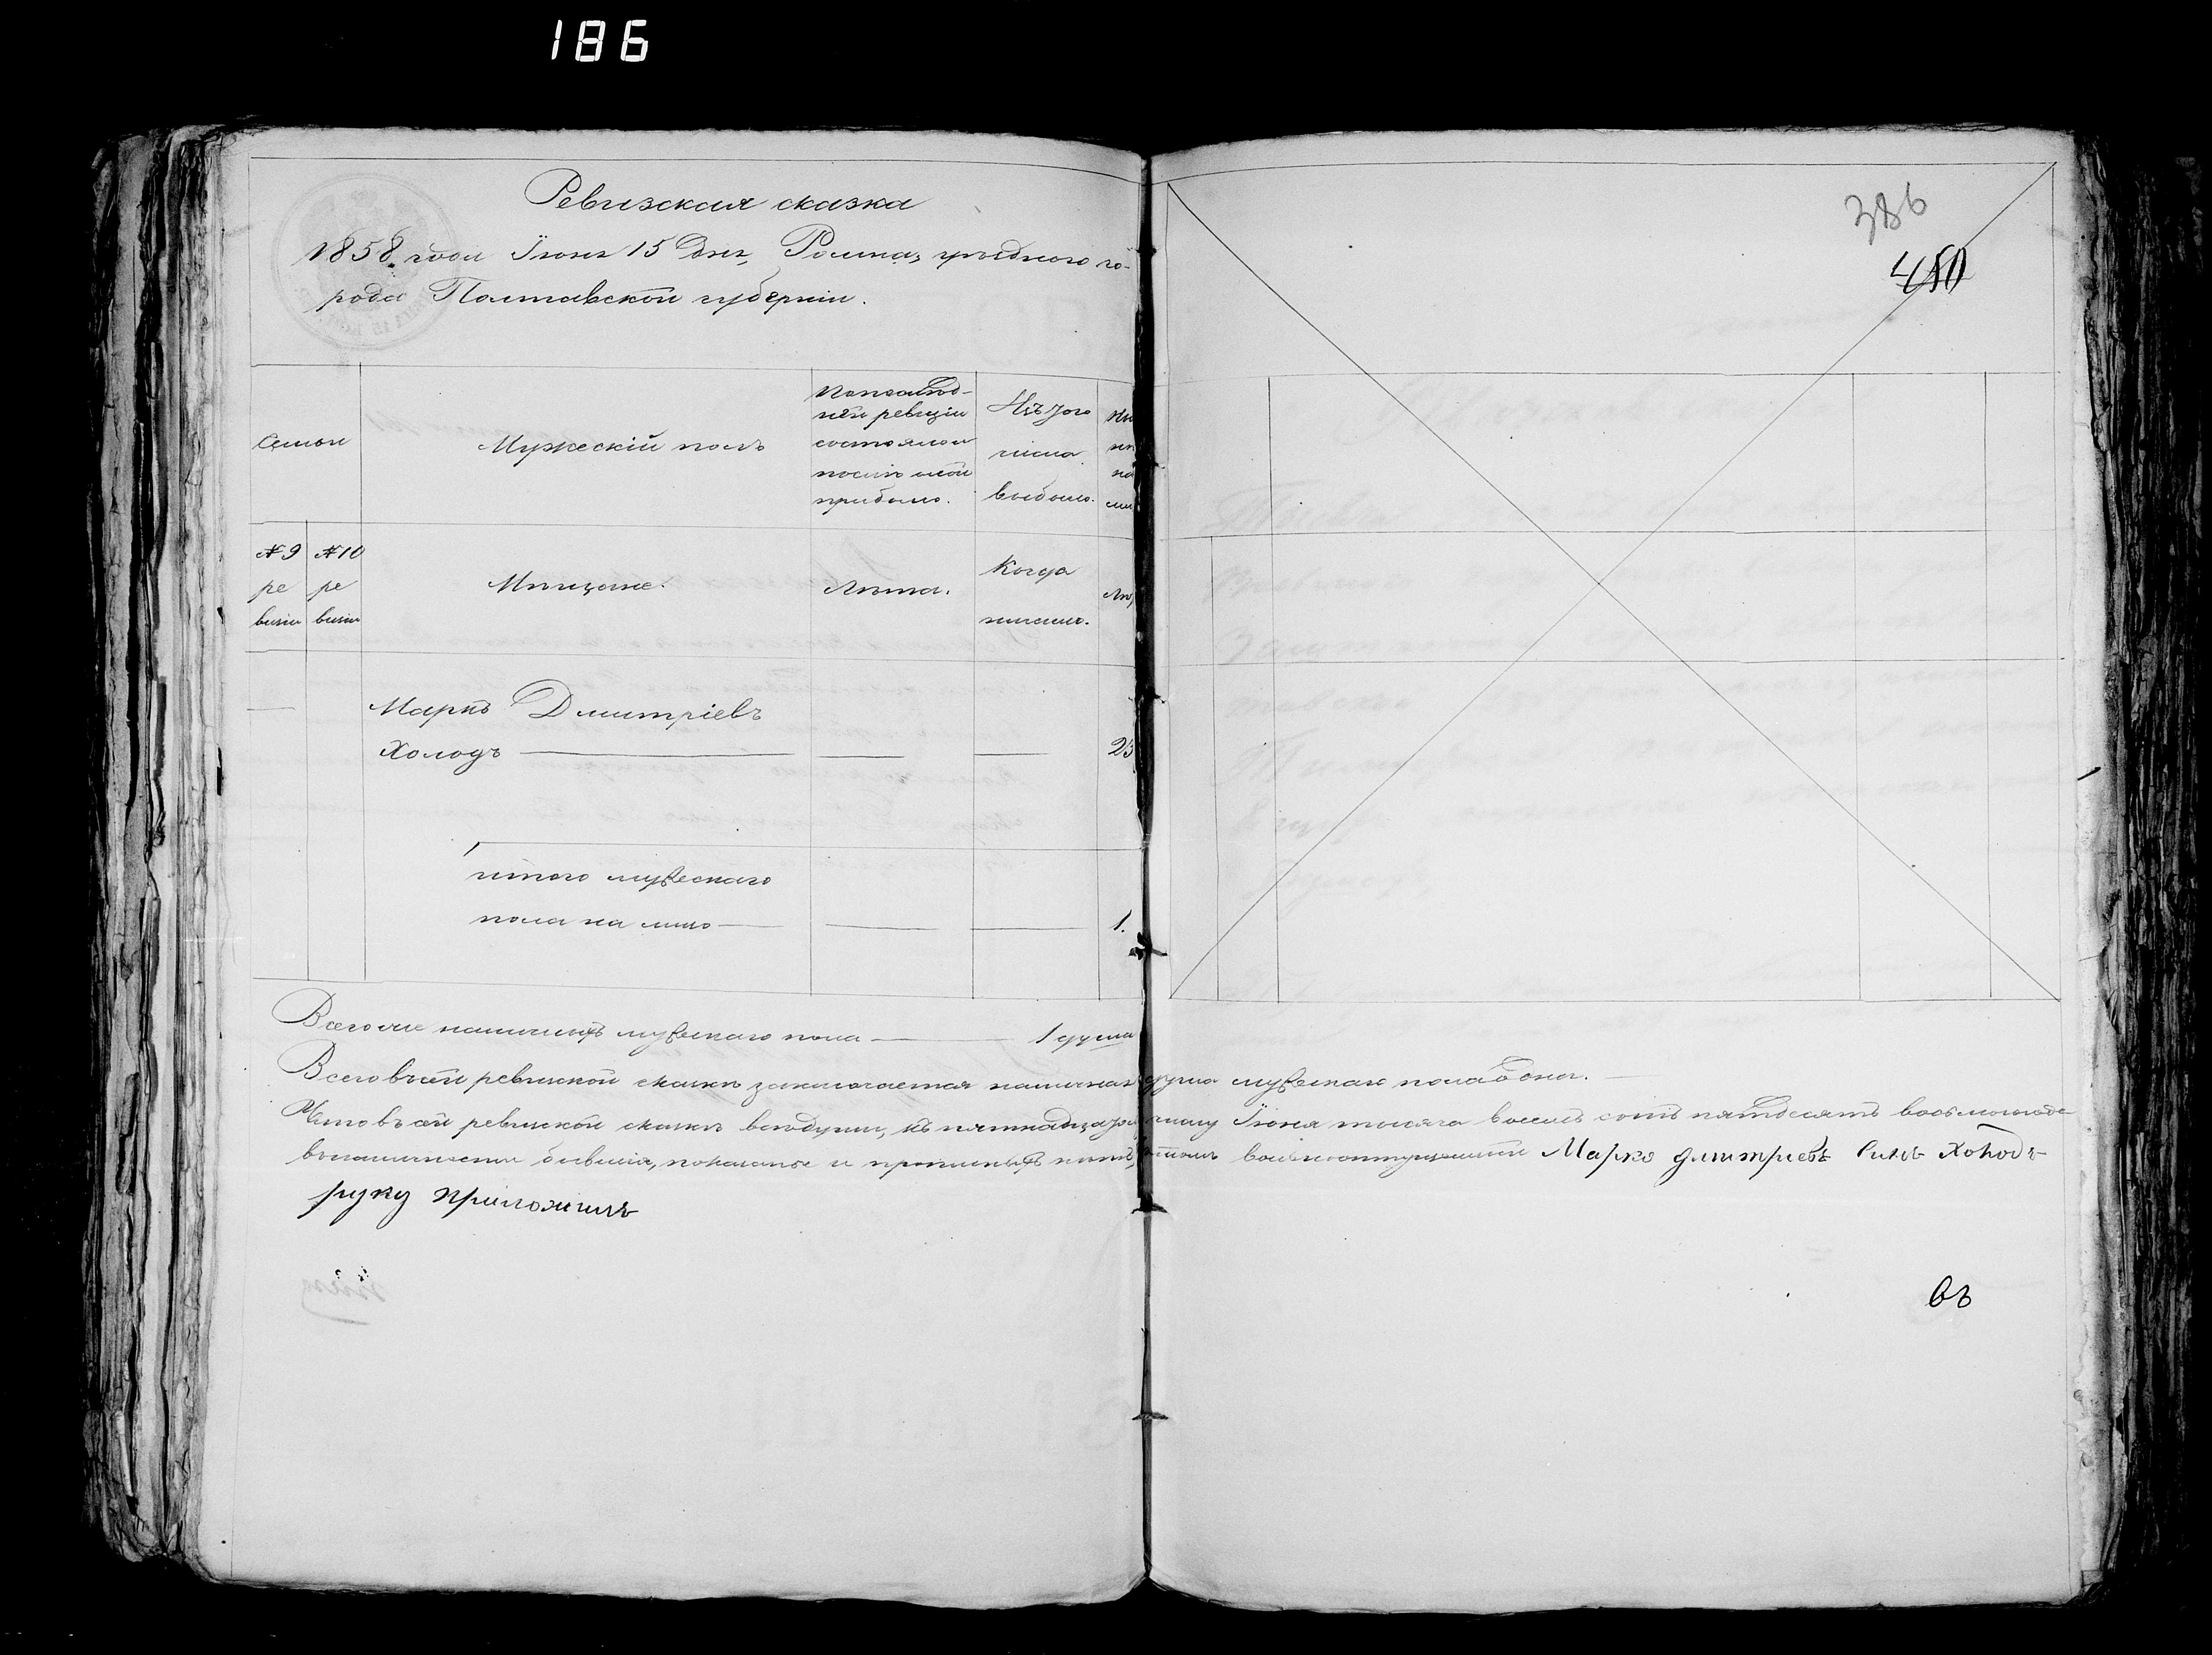 186
Ревизская сказка
1858 года Іюня 15 дня, Ромна, уѣзднаго го-
рода Полтавской губерніи.
386
450
Семьи
Мужескій полъ
По послѣд-
ней ревизіи
состояло и
послѣ оной
прибыло.
Изъ того
числа
выбыло.
№ 9 ре визіи
№ 10 ре визіи
Мѣщане.
Лѣта.
Когда
именно.
Марко Дмитріевъ
Холодъ 23
итого мужескаго
пола на лицо 1.
Всего же наличныхъ мужескаго пола 1 душа
Всего въ сей ревизской сказкѣ заключается наличная душа мужескаго пола одна.
Что въ сей ревизской сказкѣ всѣ души, къ пятнадцатому числу Іюня тысяча восемь сотъ пятдесятъ восьмого года
въ наличности бывшія, показаны и прописныхъ нѣтъ, въ томъ Марко Дмитріевъ синъ Холодъ
руку приложилъ
въ